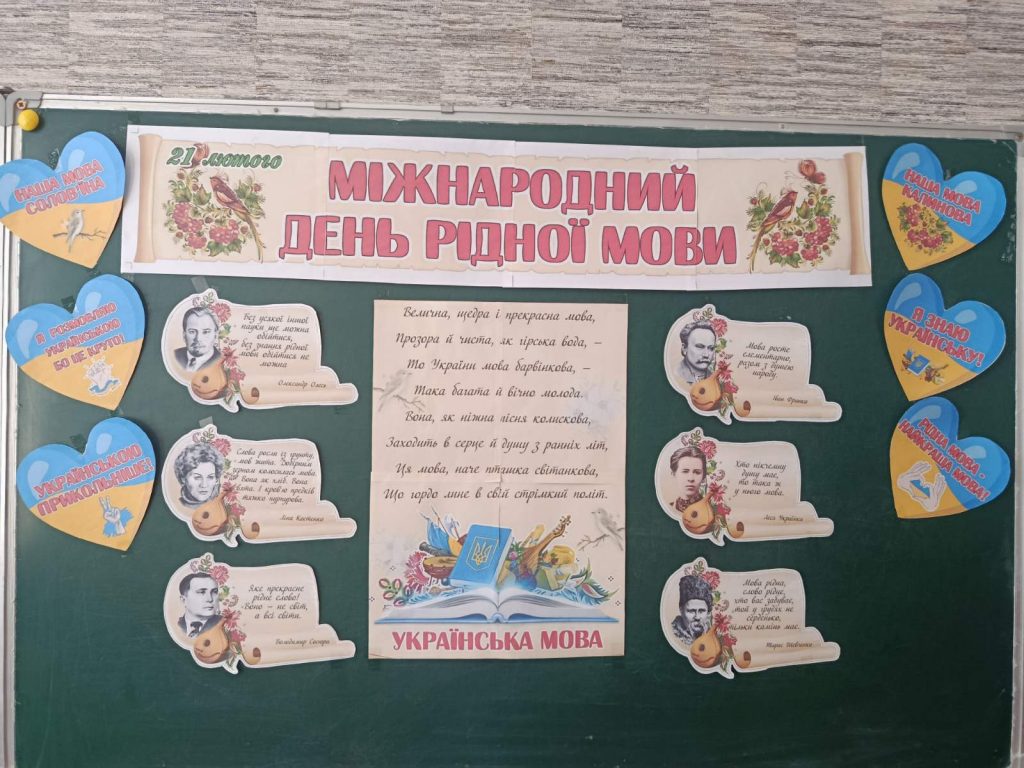 21 лютого
МІЖНАРОДНИЙ
ДЕНЬ РІДНОЇ МОВИ
НАША МОВА
СОЛОВ'ЇНА
Я РОЗМОВЛЯЮ
УКРАЇНСЬКОЮ
БО ЦЕ КРУТО!
УКРАЇНСЬКОЮ
ПРИКОЛЬНІШЕ!
Без усякої іншої
науки ще можна
обійтися,
без знання рідної
мови обійтися не
можна
Олександр Олесь
Слова росли із ґрунту,
мов жита. Добірним
зерном колосилась мова.
Вона як хліб. Вона
свята. І кров'ю предків
тяжко пурпурова.
Ліна Костенко
Яке прекрасне
рідне слово!
Воно – не світ,
а всі світи.
Володимир Сосюра
Велична, щедра і прекрасна мова,
Прозора й чиста, як гірська вода, –
То України мова барвінкова, –
Така багата й вічно молода.
Вона, як ніжна пісня колискова,
Заходить в серце й душу з ранніх літ,
Ця мова, наче пташка світанкова,
Що гордо лине в свій стрімкий політ.
УКРАЇНСЬКА МОВА
Мова росте
елементарно,
разом з душею
народу.
Іван Франко
Хто нікчемну
душу має,
то така ж
у нього мова.
Леся Українка
Мова рідна,
слово рідне,
хто вас забуває,
той у грудях не
серденько,
тільки камінь має.
Тарас Шевченко
НАША МОВА
КАЛИНОВА
Я ЗНАЮ
УКРАЇНСЬКУ!
РІДНА МОВА -
НАЙКРАЩА МОВА!